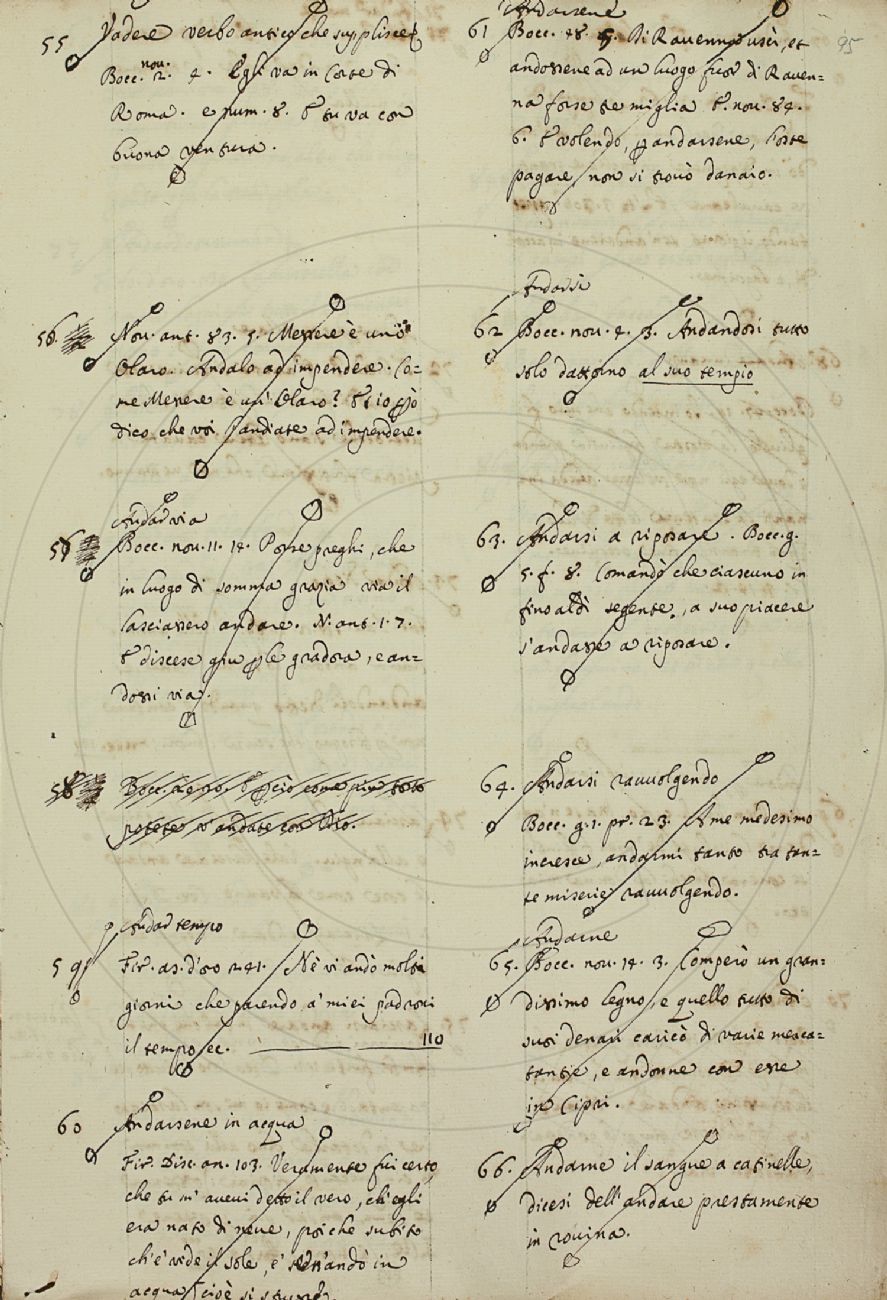 55 Vadere verbo antico che supplisce
Bocc. nov. 2. 4. Egli va in Corte di
Roma. e num. 8. E tu va con
buona ventura.
56 Nov. ant. 83. 5. Messere è un
Olaro. Andalo ad impendere. Co=
me Messere è un' Olaro? Et io
dico che voi l'andiate ad impendere.
Andar via
Bocc. nov. 11. 14. Porse preghi, che
in luogo di somma grazia via il
lasciassero andare. N. ant. 1. 7.
E discese giu le gradora, e an=
dossi via.
58 Bocc. come piu tosto
potete v'andate con Dio.
Andar tempo
59 Fir. as. d'oro 241. Nè vi andò molti
giorni che parendo a' miei padroni
il tempo ec. 110
60 Andarsene in acqua
Fir. Disc. an. 103. Veramente fui certo,
che tu m' avevi detto il vero, ch'egli
era nato di neve, poi che subito
ch'e' vide il sole, e' se n'andò in
acqua
95
Andarsene
61 Bocc. 48. 5. Di Ravenna uscì, et
andossene ad un luogo fuor di Raven=
na forse tre miglia E. nov. 84.
6. E volendo, andarsene, l'oste
pagare, non si trovò danaio.
Andarsi
62 Bocc. nov. 4. 3. Andandosi tutto
solo dattorno al suo tempio
63. Andarsi a riposare. Bocc. g.
5. f. 8. Comandò che ciascuno in
fino al dì segente, a suo piacere
s'andasse a riposare.
64. Andarsi ravvolgendo
Bocc. g. 1. pr. 23. A me medesimo
incresce, andarmi tanto tra tan=
te miserie ravvolgendo.
Andarne
65. Bocc. nov. 14. 3. Comperò un gran=
dissimo legno, e quello tutto di
suoi denari caricò di varie merca=
tantie, e andonne con esse
in Cipri.
66. Andarne il sangue a catinelle,
dicesi dell'andare prestamente
in rovina.